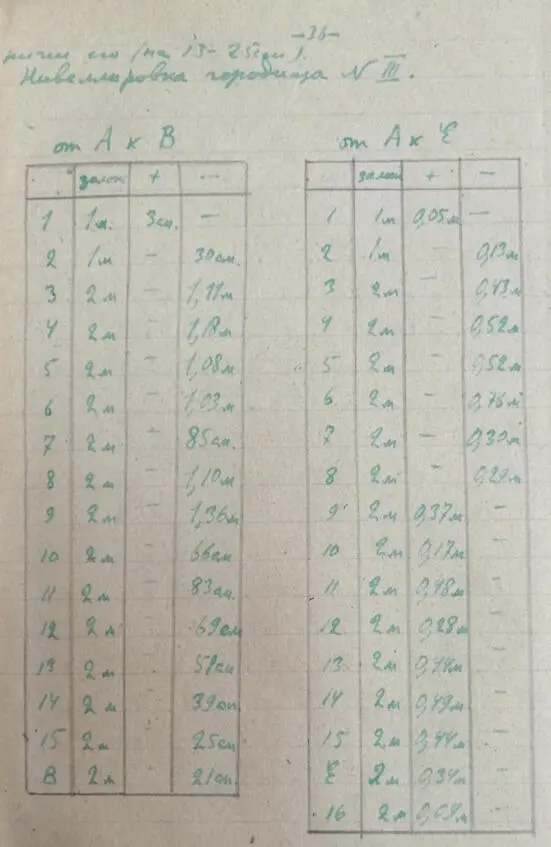 -36-
его (на 13-25см).
Нивеллировка городища N III.
от А к В
залож + —
1 1м. 3см. —
2 1м — 30см.
3 2м — 1,11м
4 2м — 1,18м
5 2м — 1,08м
6 2м — 1,03м
7 2м — 85см.
8 2м — 1,10м
9 2м — 1,36м
10 2м — 66см
11 2м — 83см.
12 2м 69см
13 2м
14 2м 39см.
15 2м 25см
В 2м 21см.
от А к Е
залож + —
1 1м 0,05м —
2 1м — 0,13м
3 2м — 0,43м
4 2м — 0,52м
5 2м — 0,52м
6 2м — 0,76м
7 2м — 0,30м
8 2м — 0,29м
9 2м 0,37м —
10 2м 0,17м —
11 2м 0,48м —
12 2м 0,28м —
13 2м —
14 2м 0,49м —
15 2м 0,44м —
Е 2м 0,34м —
16 2м —